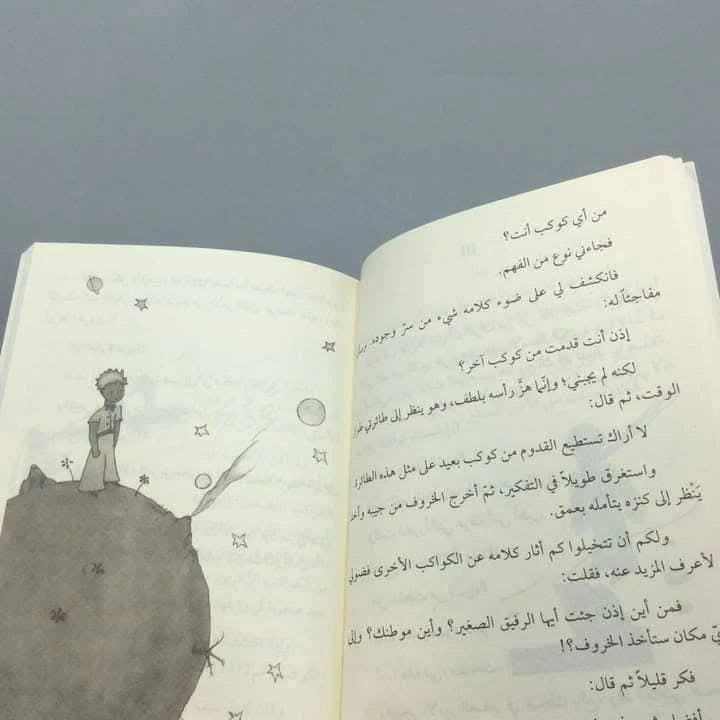 من أي كوكب أنت؟
فجاءني نوع من الفهم.
فانكشف لي على ضوء كلامه شيء من سرّ وجوده،
مفاجئاً له:
إذن أنت قدمت من كوكب آخر؟
لكنه لم يجبني؛ وإنّما هزَّ رأسه بلطف، وهو ينظر إلى طائرتي
الوقت، ثم قال:
لا أراك تستطيع القدوم من كوكب بعيد على مثل هذه الطائرة.
واستغرق طويلاً في التفكير، ثمّ أخرج الخروف من جيبه
يَنْظر إلى كنزه يتأمله بعمق.
ولكَم أن تتخيلوا كم أثار كلامه عن الكواكب الأخرى فضولي
لأعرف المزيد عنه، فقلت:
فمن أين إذن جئت أيها الرفيق الصغير؟ وأين موطنك؟ وإلى
مكان ستأخذ الخروف؟!
فكر قليلاً ثم قال: